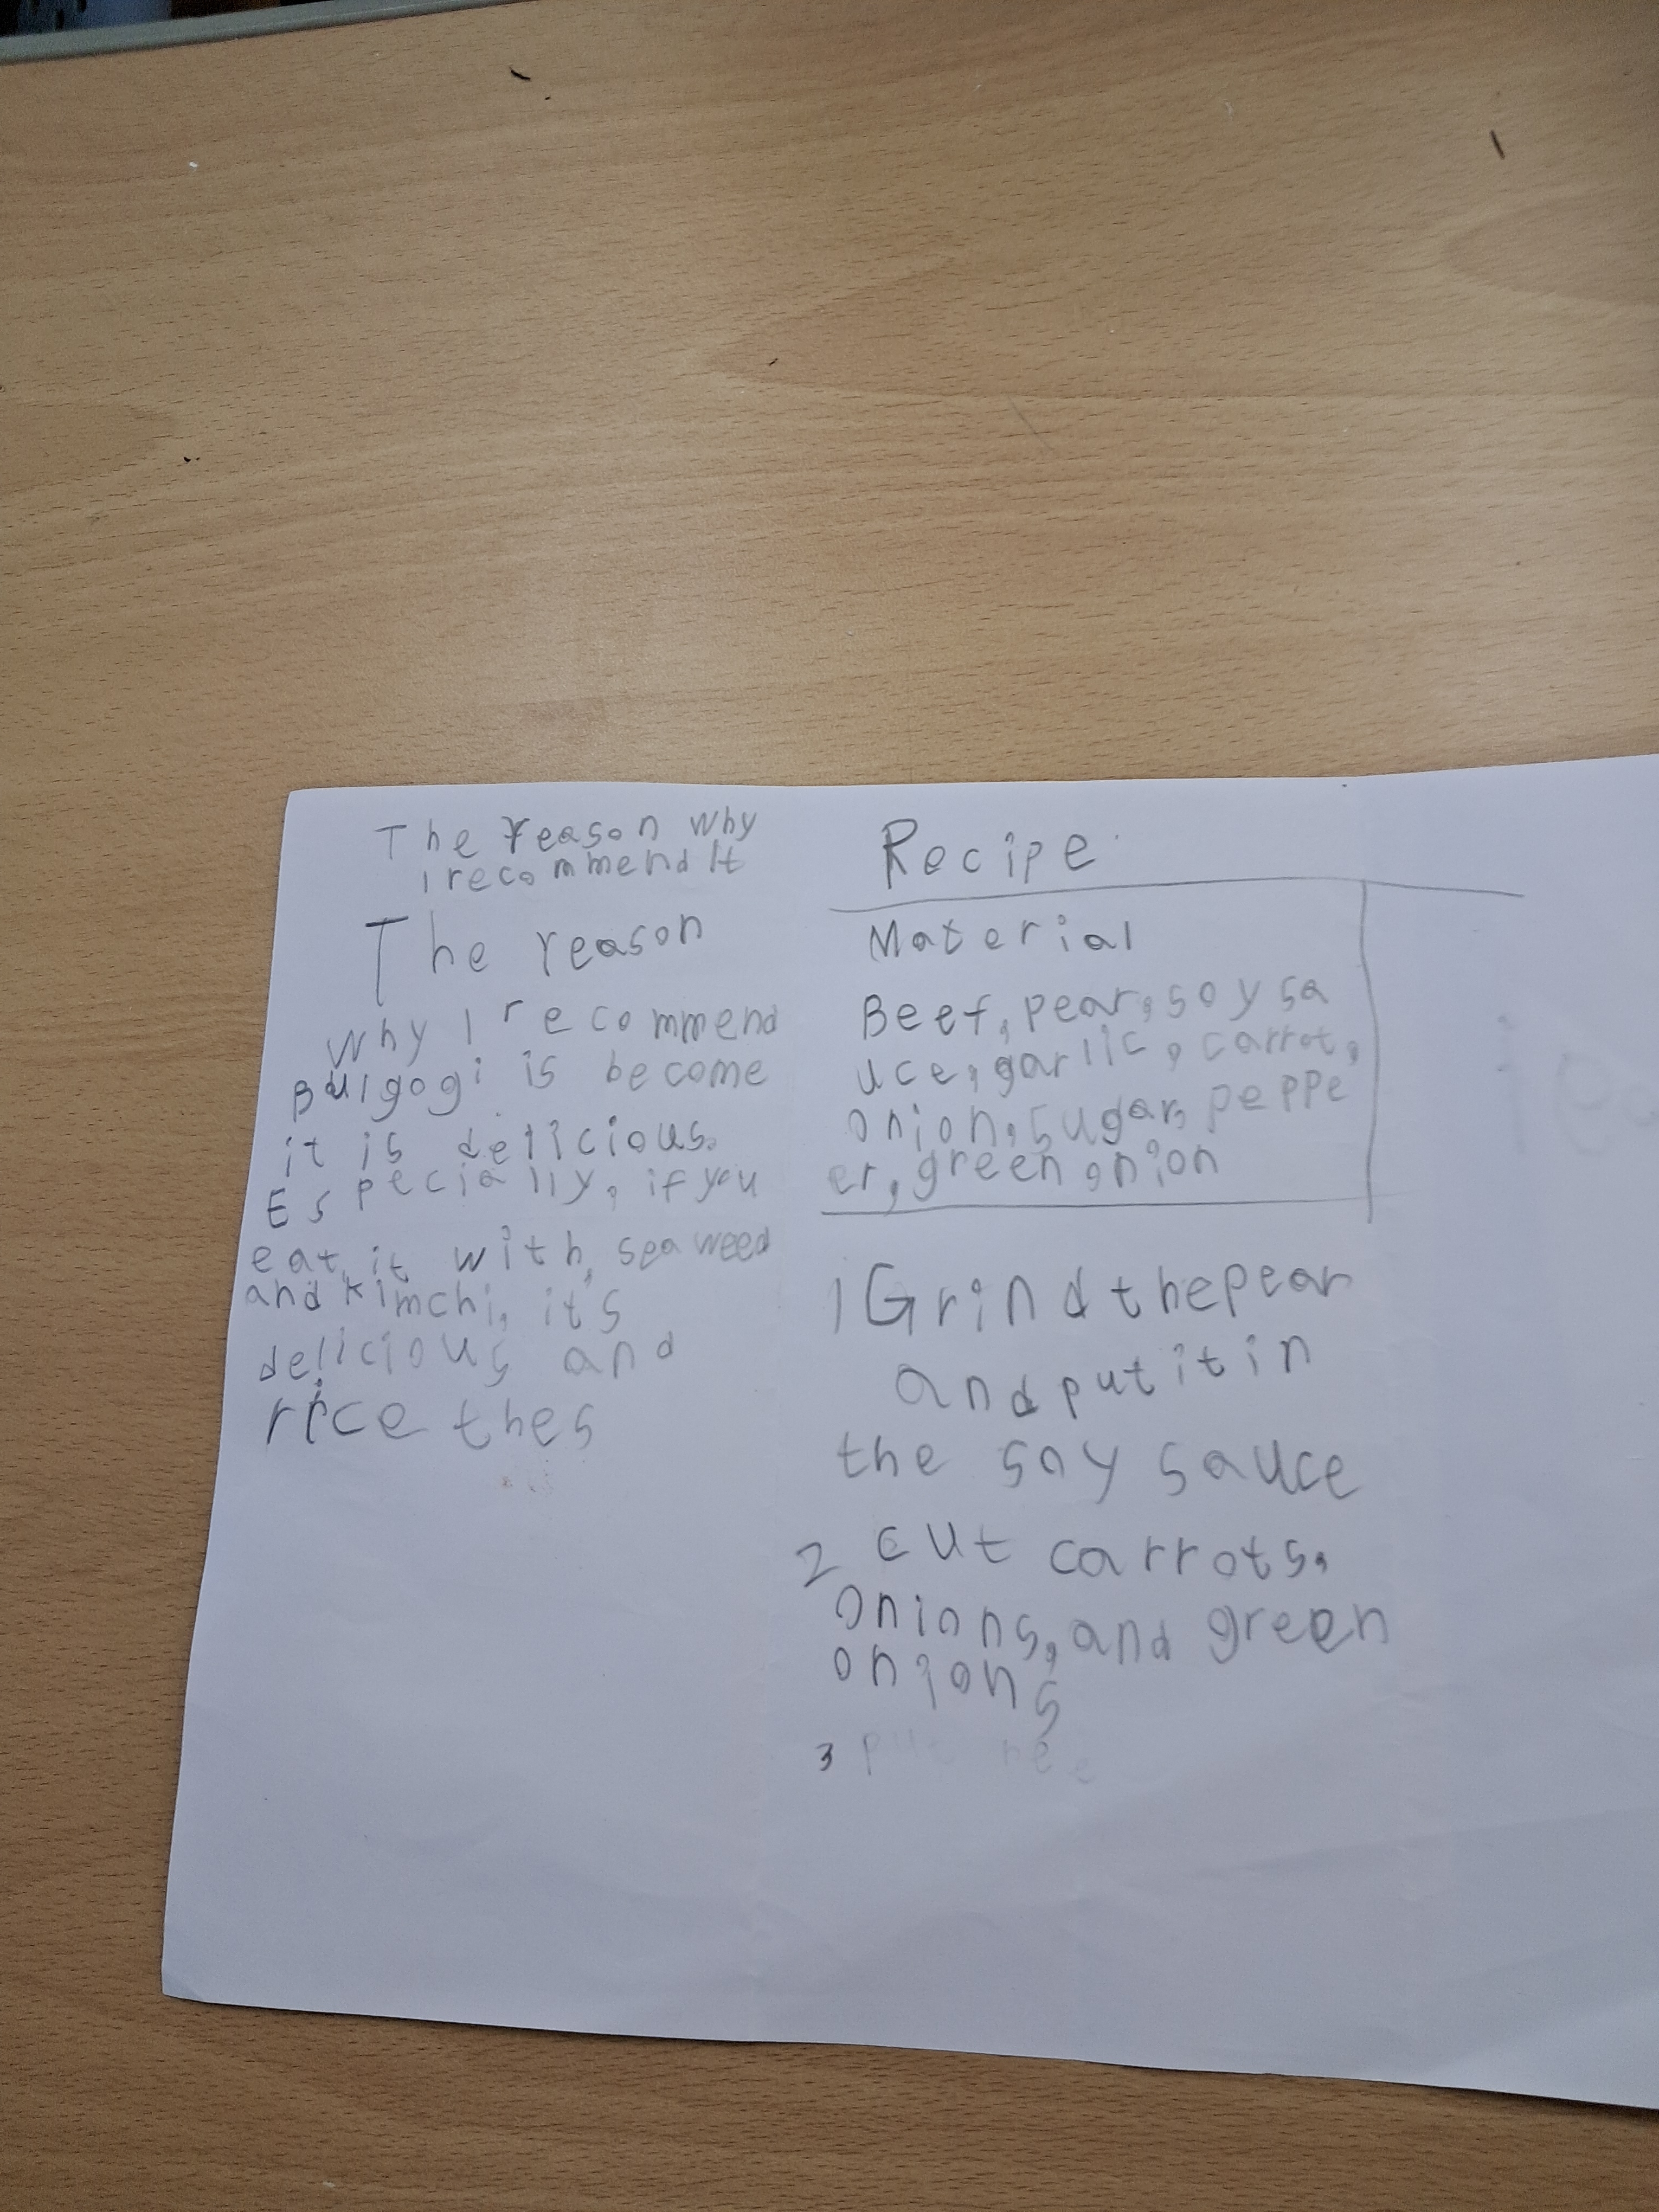 The reason why
I recommend It
The reason
why I recommend
Bulgogi is become
it is delicious.
Especially, if you
eat it with, seaweed
and kimchi, it's
delicious and
rice thes
Recipe
Material
Beef, pear, soy sa
uce, garlic, carrot,
onion, sugar, peppe
er, green onion
1 Grind the pear
and put it in
the soy sauce
2 cut carrots,
onions, and green
onions
3 put